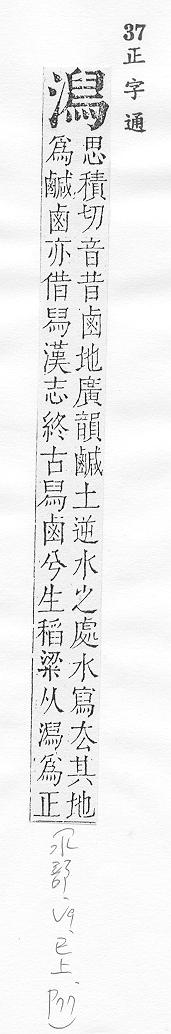 37 正字通
潟
思積切音昔鹵地廣韻鹹土逆水之處水寫去其地
為鹹鹵亦借舄漢志終古舄鹵兮生稻粱从潟為正
水部